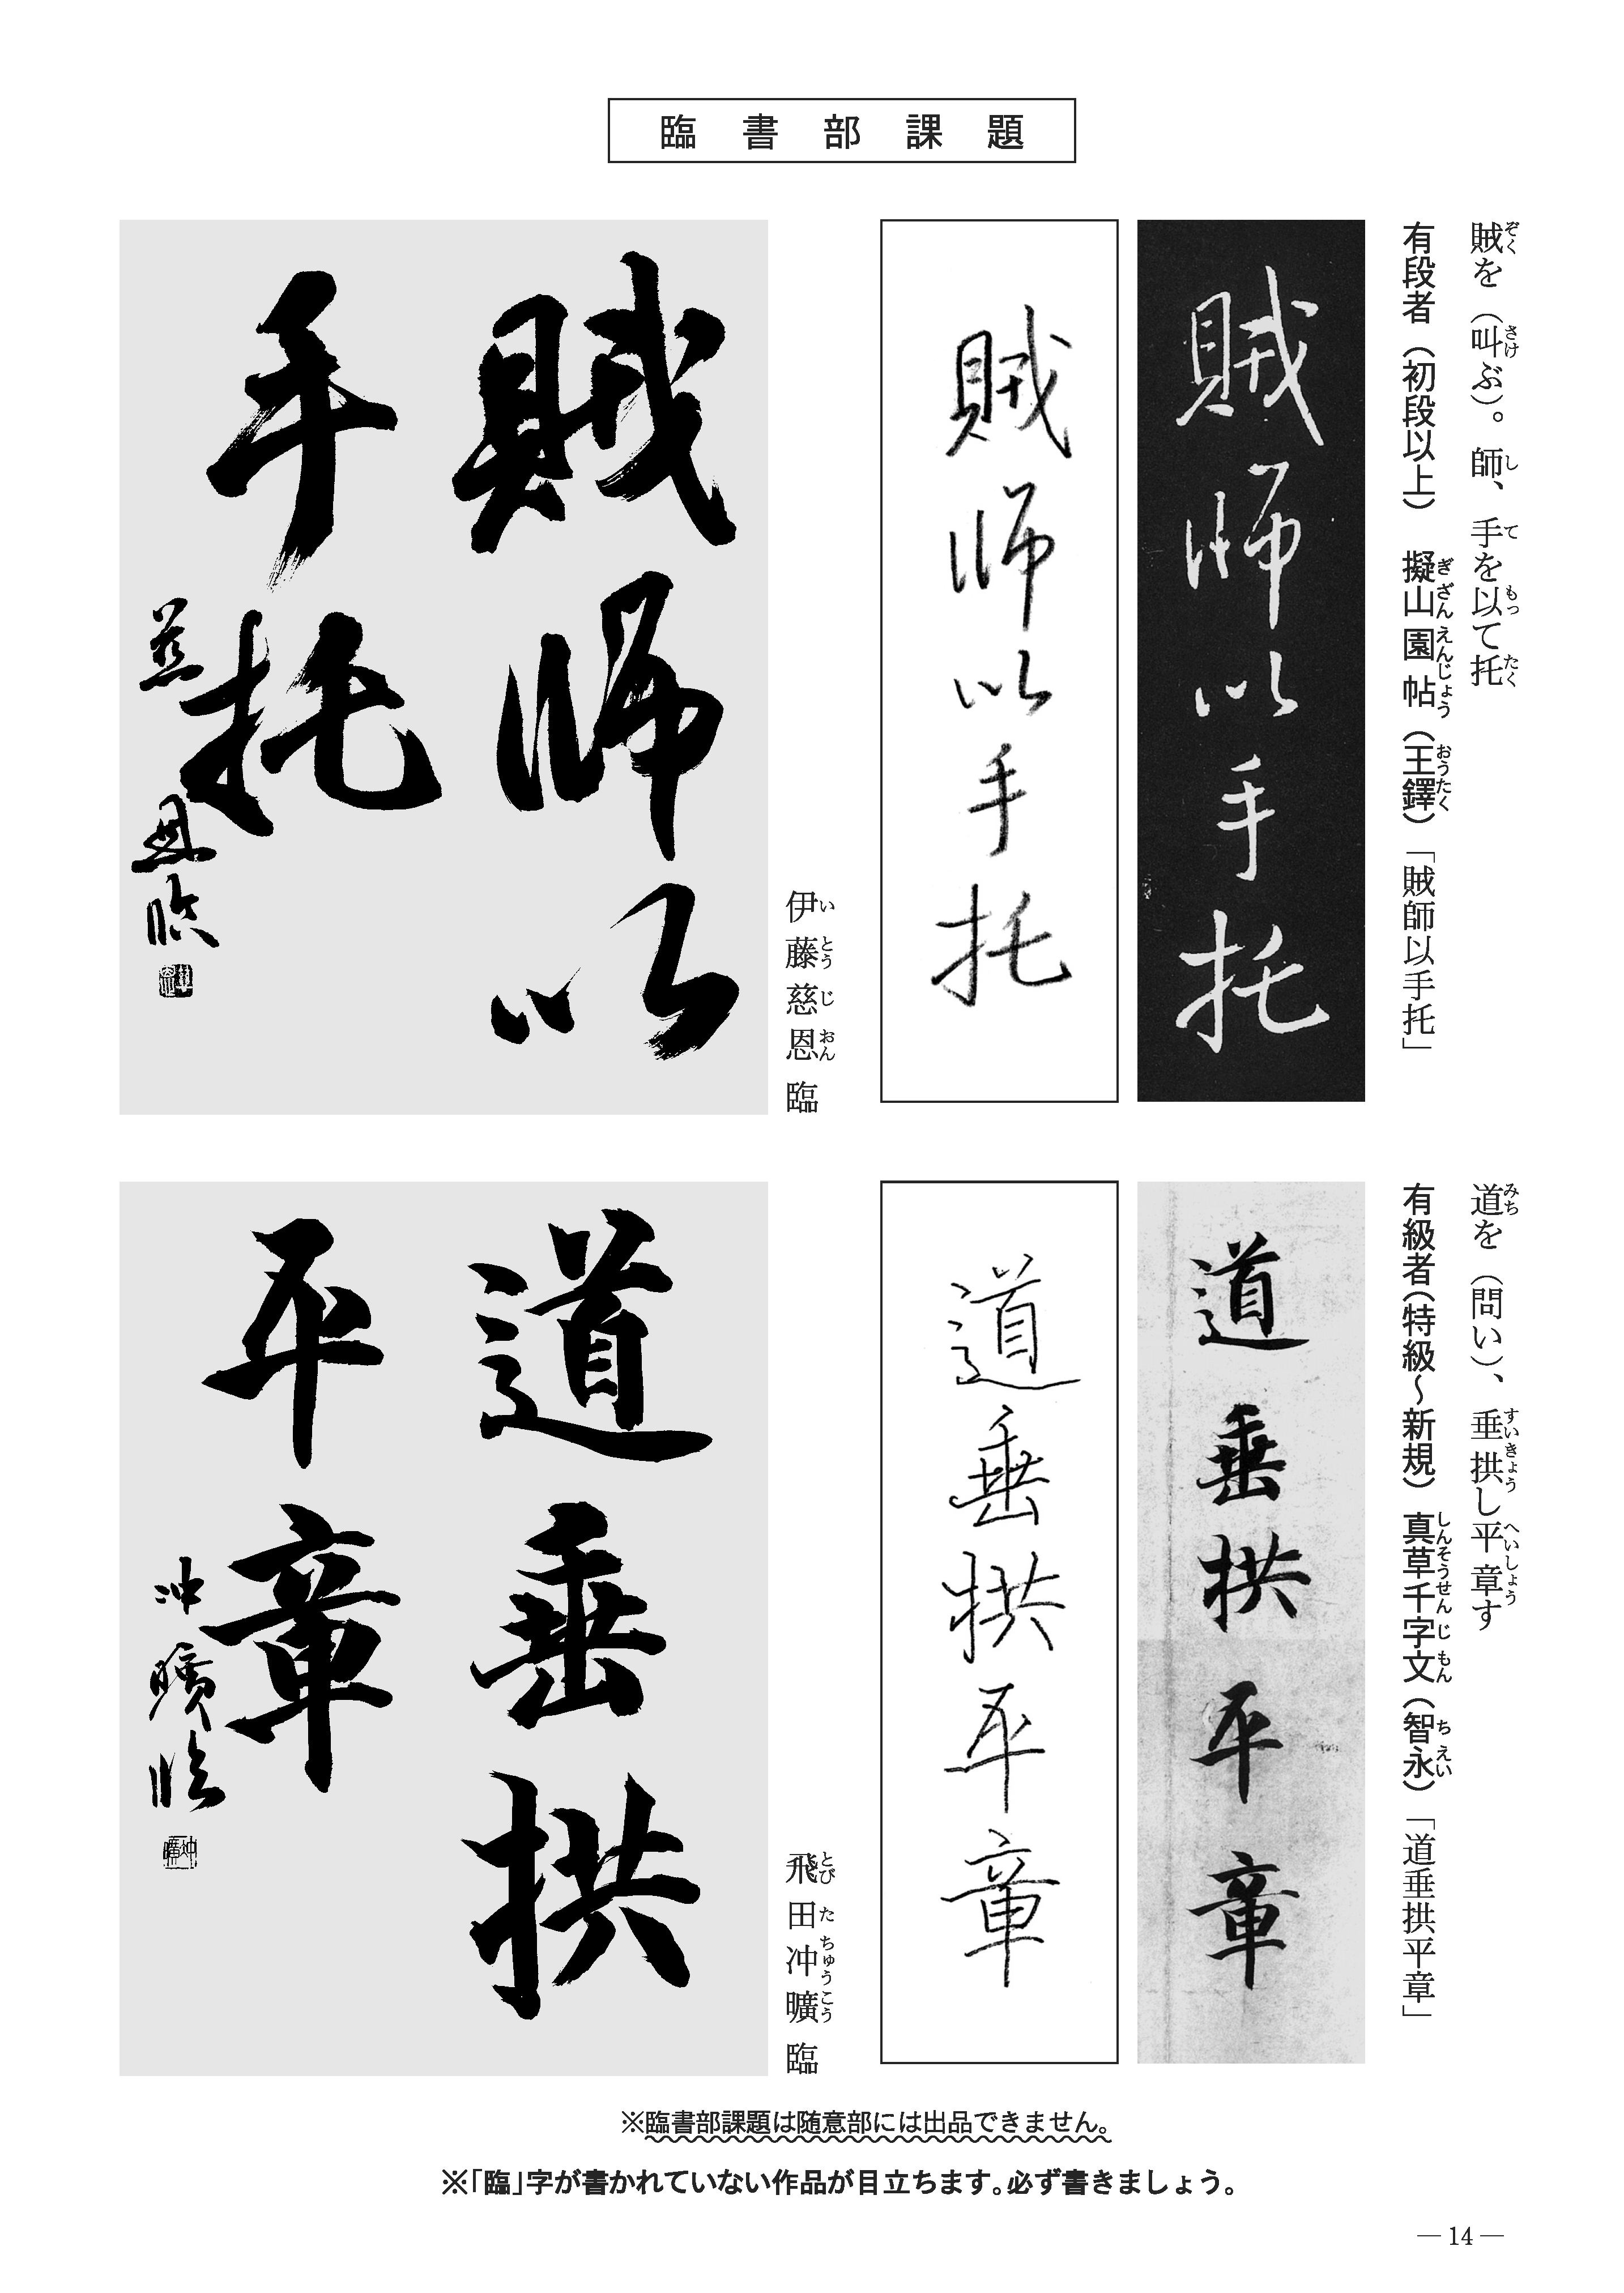 臨書部課題
賊を（叫ぶ）。師、手を以て托
有段者（初段以上）　擬山園帖（王鐸）「賊師以手托」
賊師以手托
賊師以手托
伊藤慈恩 臨
賊師以
手托
慈恩臨
道を（問い）、垂拱し平章す
有級者（特級～新規）真草千字文（智永）「道垂拱平章」
道垂拱平章
道垂拱平章
飛田冲曠 臨
道垂拱
平章
冲曠臨
※臨書部課題は随意部には出品できません。
※「臨」字が書かれていない作品が目立ちます。必ず書きましょう。
— 14 —